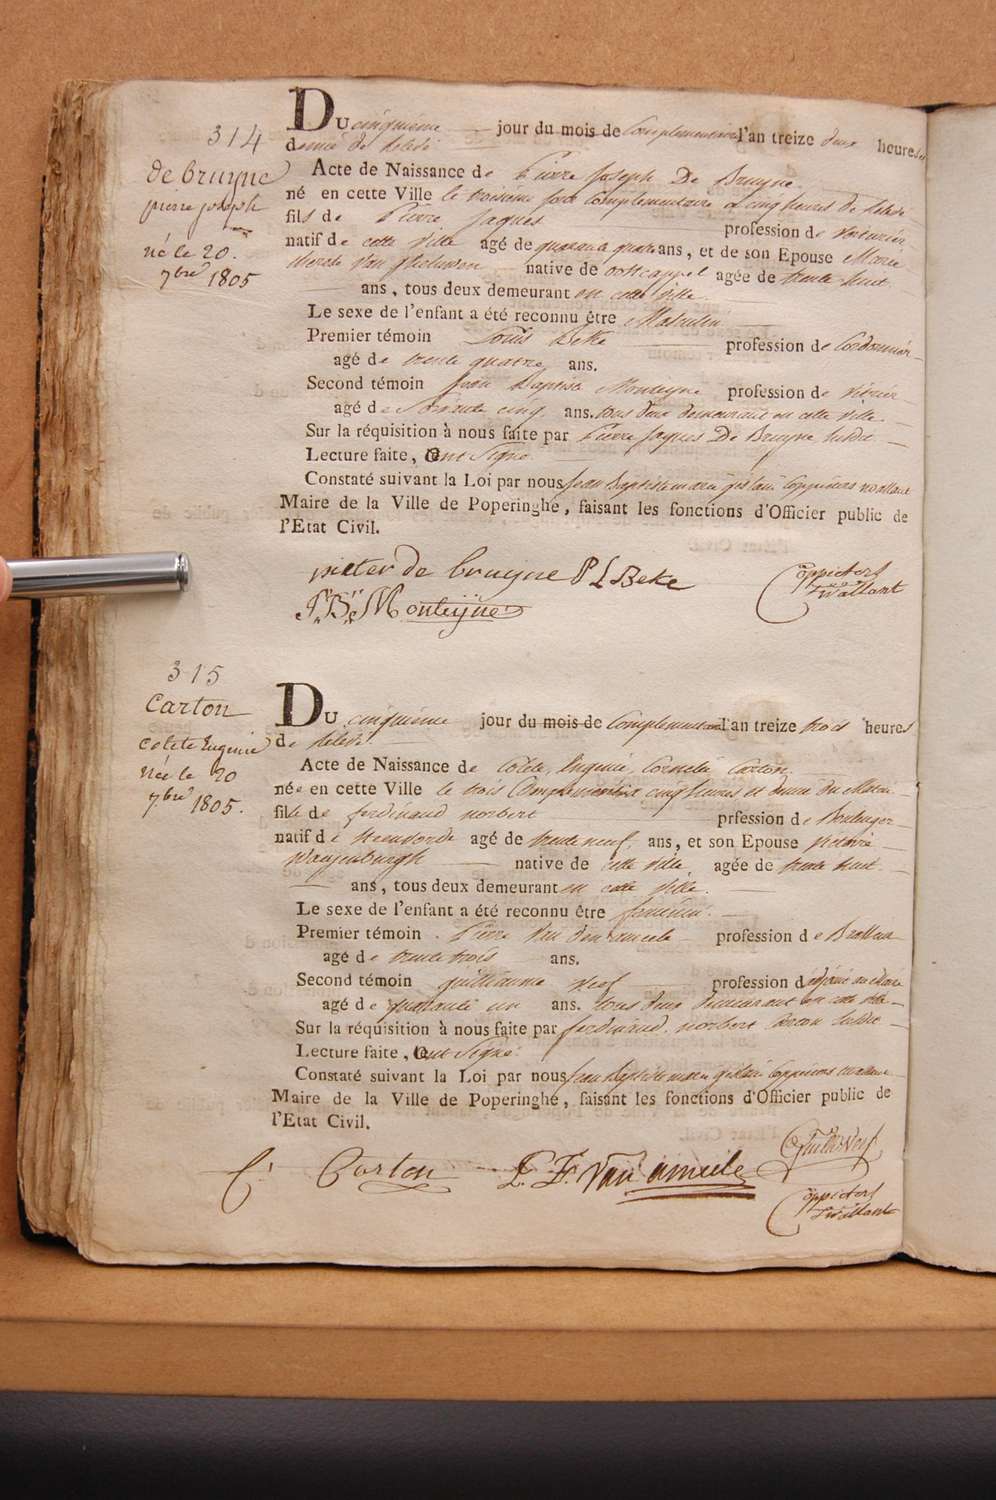 314
de bruyne
pierre joseph
né le 20.
7bre 1805
DU cinquième jour du mois de Complementaire l'an treize deux heures
demie de relevé
Acte de Naissance de Pierre Joseph De Bruyne
né en cette Ville le troisième jour Complementaire a cinq heures de relevé
fils de Pierre Jaques profession de voiturier
natif de cette ville agé de quarante quatre ans, et de son Epouse Marie
therese Van native de oostcappel agée de trente huit
ans, tous deux demeurant en cette ville.
Le sexe de l'enfant a été reconnu être Masculin
Premier témoin Louis Beke profession de Cordonnier
agé de trente quatre ans.
Second témoin Jean Baptiste Monteyne profession de
agé de cinq ans. tous deux demeurant en cette ville
Sur la réquisition à nous faite par Pierre Jaques De Bruyne susdit
Lecture faite, ont Signé
Constaté suivant la Loi par nous Jean Baptiste
Maire de la Ville de Poperinghe, faisant les fonctions d'Officier public de
l'Etat Civil.
pieter de bruyne P L Beke
J: B: Monteyne
315
Carton
colete Eugenie
née le 20
7bre 1805.
DU cinquième jour du mois de Complementaire l'an treize trois heures
de relevé
Acte de Naissance de Colete Eugenie Cornelie Carton
née en cette Ville le trois Complementaire cinq heures et demie du Matin
fille de ferdinand norbert prfession de Boulanger
natif de agé de trente neuf, ans, et son Epouse
native de cette ville agée de trente huit
ans, tous deux demeurant en cette ville.
Le sexe de l'enfant a été reconnu être feminin.
Premier témoin Pierre profession de Brasseur
agé de trente trois ans.
Second témoin guilliaume profession d'adjoint au Maire
agé de quarante un ans. tous deux demeurant en cette ville
Sur la réquisition à nous faite par ferdinand norbert Carton susdit
Lecture faite, ont Signé.
Constaté suivant la Loi par nous Jean Baptiste
Maire de la Ville de Poperinghe, faisant les fonctions d'Officier public de
l'Etat Civil.
Carton